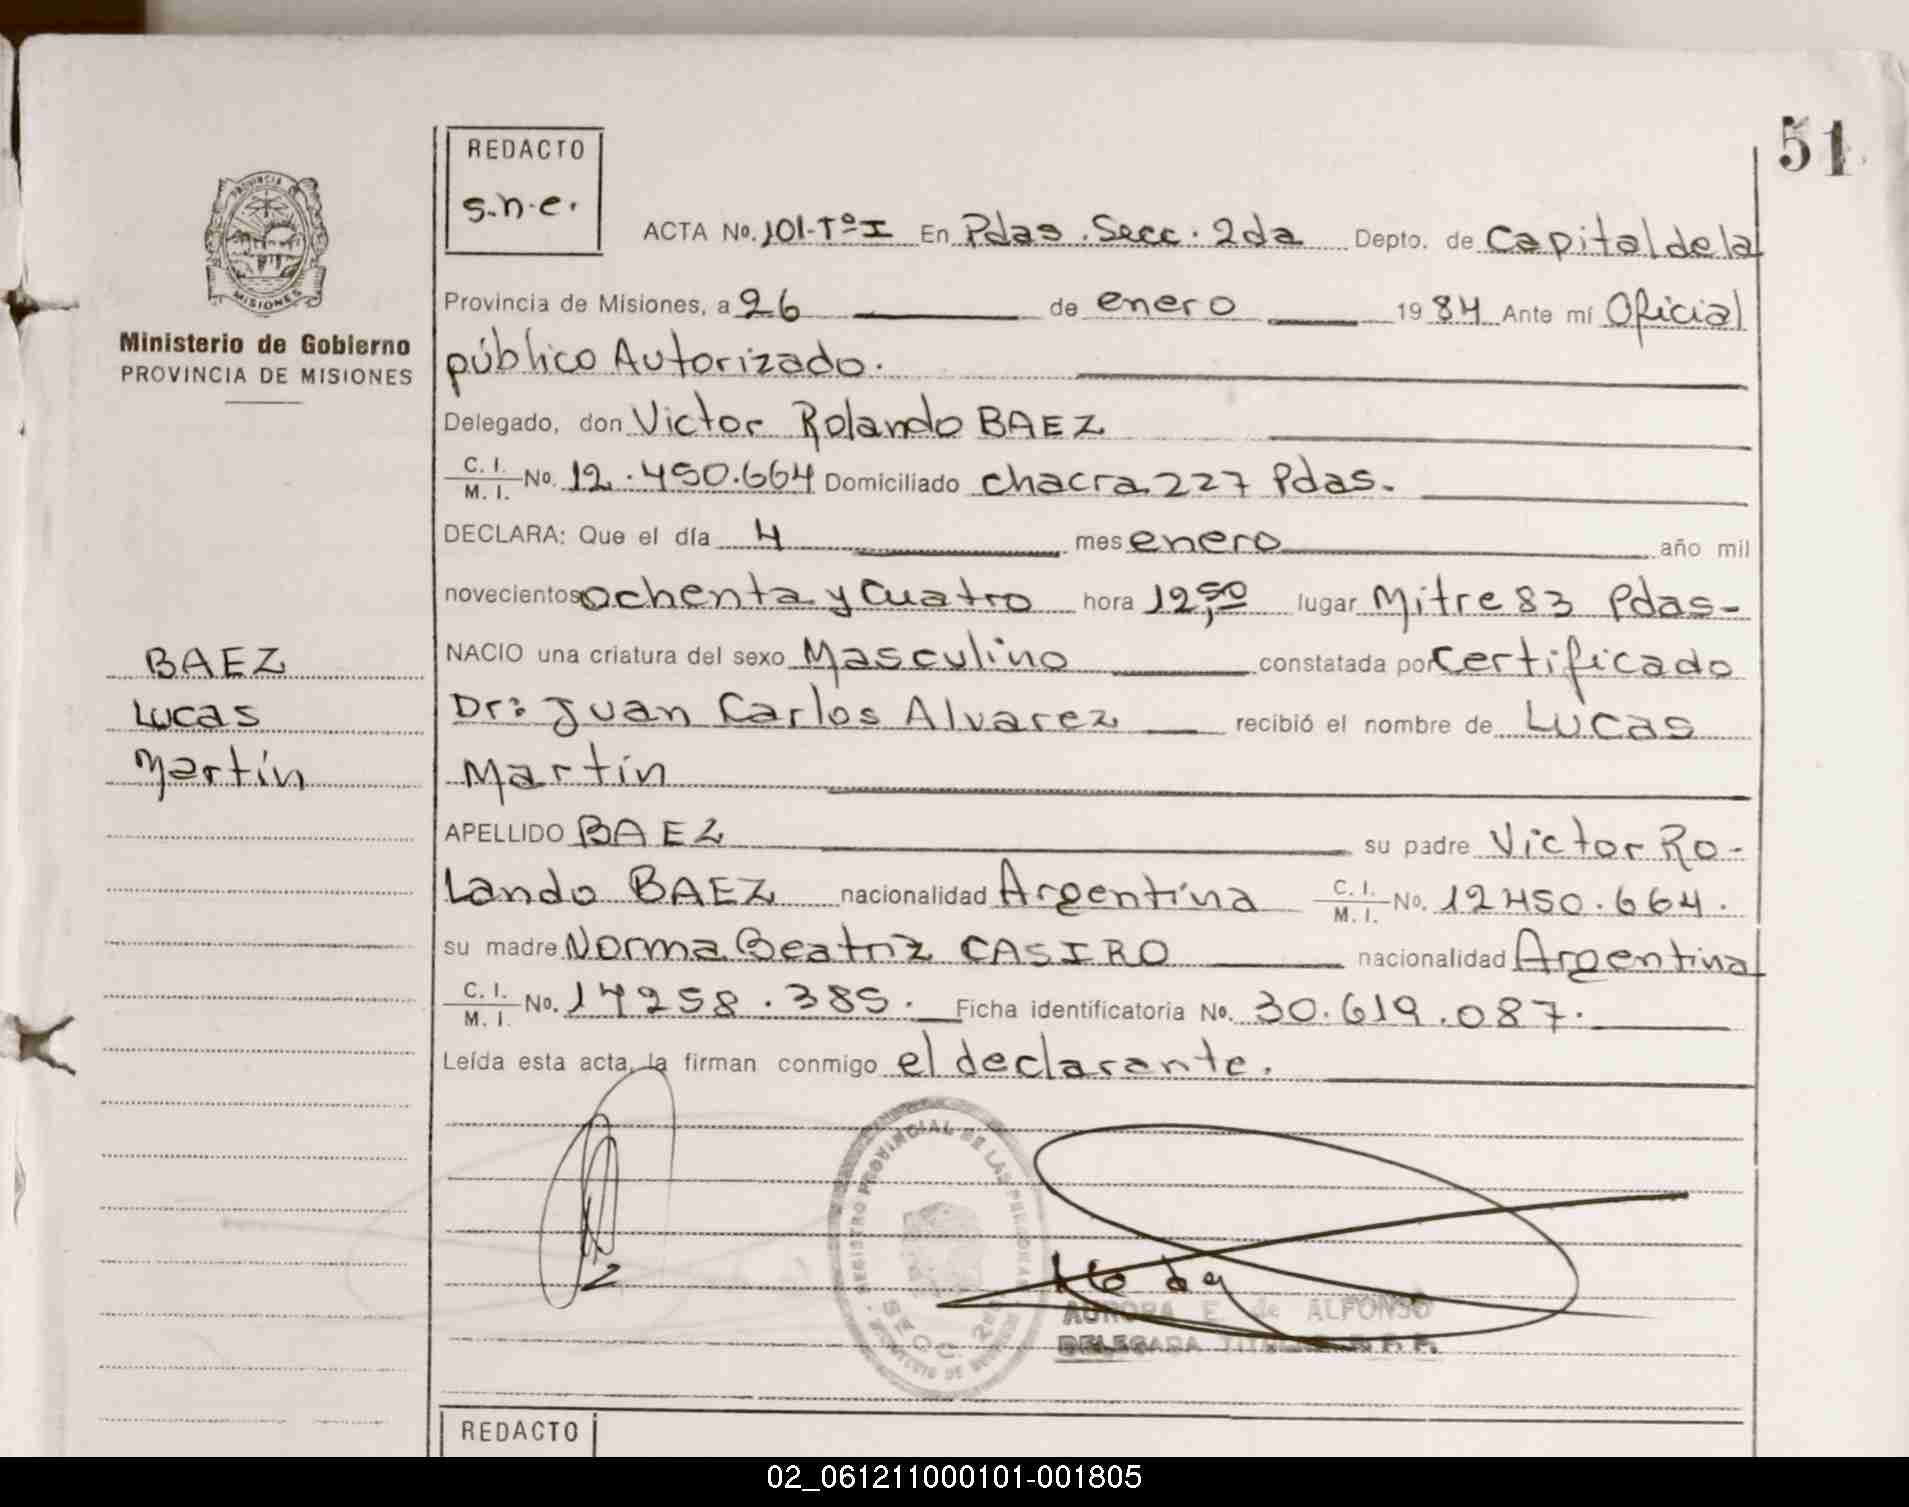 51
REDACTO
s.n.e.
PROVINCIA
MISIONES
Ministerio de Gobierno
PROVINCIA DE MISIONES
ACTA No. 101-Tº I En Pdas. Secc. 2da Depto. de Capital de la
Provincia de Misiones, a 26 de enero 1984 Ante mí Oficial
público Autorizado.
Delegado, don Victor Rolando BAEZ
C. I. / M. I. No. 12.450.664 Domiciliado chacra 227 Pdas.
DECLARA: Que el día 4 mes enero año mil
novecientos ochenta y cuatro hora 12,50 lugar Mitre 83 Pdas-
NACIO una criatura del sexo Masculino constatada por Certificado
Dr: Juan Carlos Alvarez recibió el nombre de Lucas
Martín
APELLIDO BAEZ su padre Victor Ro-
Lando BAEZ nacionalidad Argentina C. I. / M. I. No. 12450.664.
su madre Norma Beatriz CASIRO nacionalidad Argentina
C. I. / M. I. No. 17258.385. Ficha identificatoria No. 30.619.087.
Leída esta acta, la firman conmigo el declarante.
BAEZ
Lucas
Martín
REGISTRO PROVINCIAL DE LAS PERSONAS
SECC. 2da
AURORA E. de ALFONSO
DELEGADA TITULAR R. P. P.
REDACTO
02_061211000101-001805